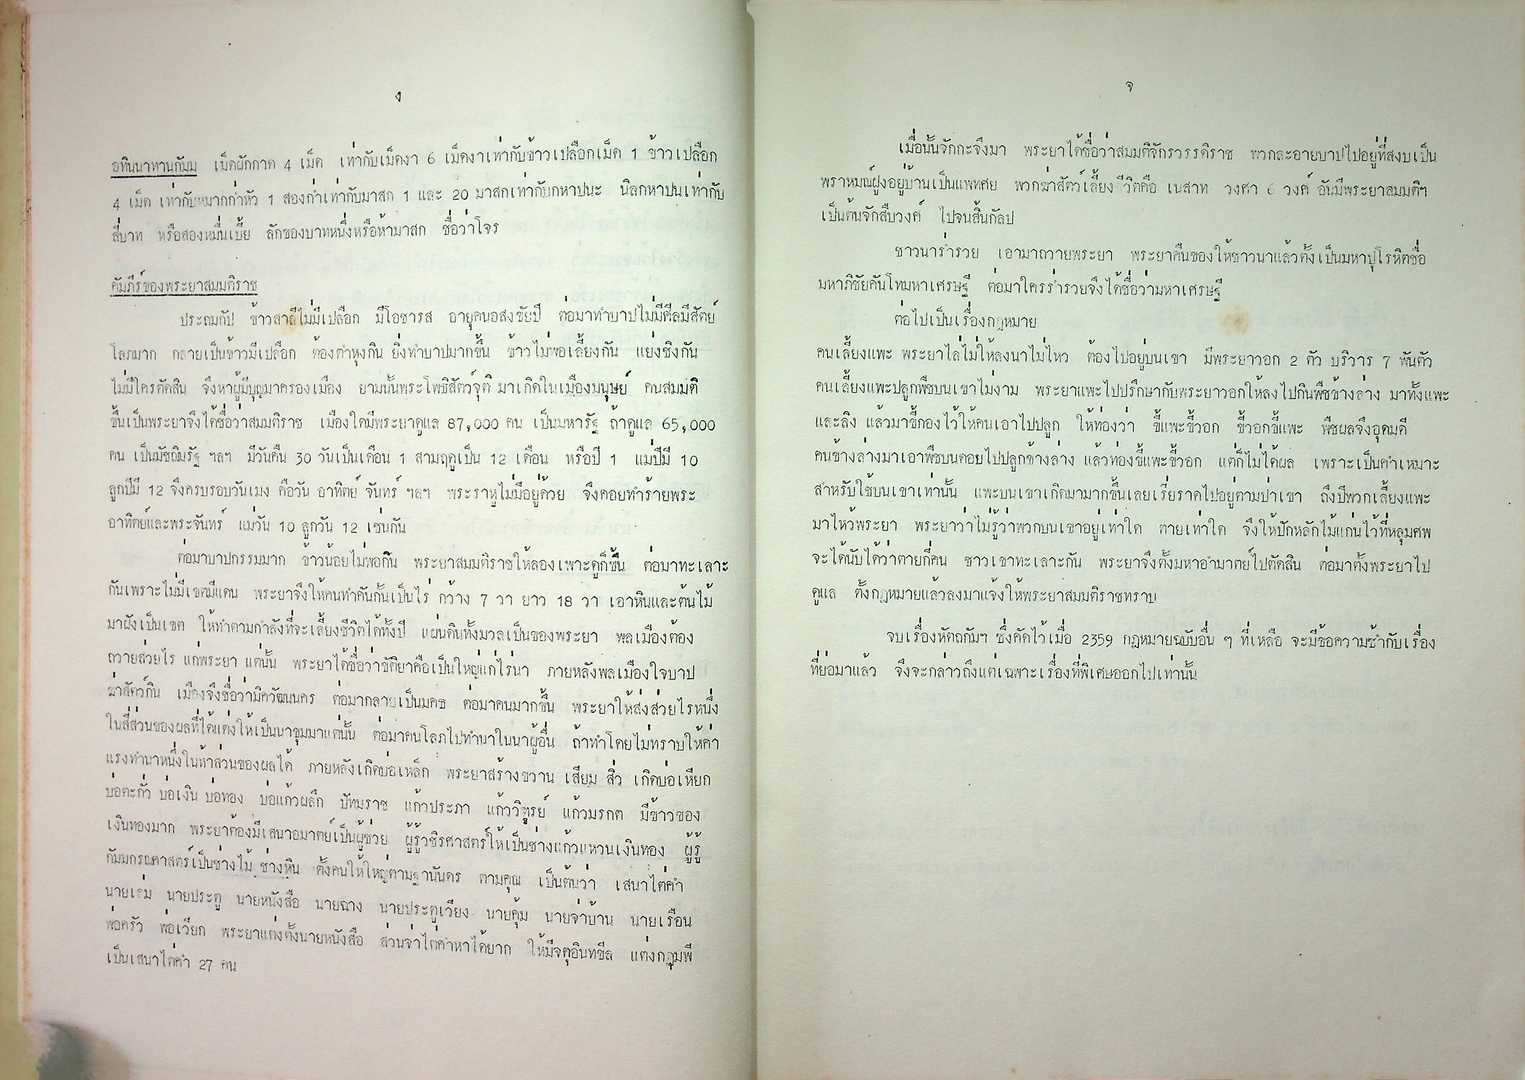 ง
อทินนาทานกัมม เม็ดผักกาด 4 เม็ด เท่ากับเม็ดงา 6 เม็ดงาเท่ากับข้าวเปลือกเม็ด 1 ข้าวเปลือก
4 เม็ด เท่ากับหมากกล่ำหัว 1 สองกล่ำเท่ากับมาสก 1 และ 20 มาสกเท่ากับกหาปนะ นิลกหาปนเท่ากับ
สี่บาท หรือสองหมื่นเบี้ย ลักของบาทหนึ่งหรือห้ามาสก ชื่อว่าโจร
คัมภีร์ของพระยาสมมติราช
ประถมกัป ข้าวสาลีไม่มีเปลือก มีโอชารส อายุคนอสงขัยปี ต่อมาทำบาปไม่มีศีลมีสัตย์
โลภมาก กลายเป็นข้าวมีเปลือก ต้องตำหุงกิน ยิ่งทำบาปมากขึ้น ข้าวไม่พอเลี้ยงกัน แย่งชิงกัน
ไม่มีใครตัดสิน จึงหาผู้มีบุญมาครองเมือง ยามนั้นพระโพธิสัตว์จุติ มาเกิดในเมืองมนุษย์ คนสมมติ
ขึ้นเป็นพระยาจึงได้ชื่อว่าสมมติราช เมืองใดมีพระยาดูแล 87,000 คน เป็นมหารัฐ ถ้าดูแล 65,000
คน เป็นมัชฌิมรัฐ ฯลฯ มีวันคืน 30 วันเป็นเดือน 1 สามฤดูเป็น 12 เดือน หรือปี 1 แม่ปีมี 10
ลูกปีมี 12 จึงครบรอบวันเมง คือวัน อาทิตย์ จันทร์ ฯลฯ พระราหูไม่มีอยู่ด้วย จึงคอยทำร้ายพระ
อาทิตย์และพระจันทร์ แม่วัน 10 ลูกวัน 12 เช่นกัน
ต่อมาบาปกรรมมาก ข้าวน้อยไม่พอกิน พระยาสมมติราชให้ลองเพาะดูก็ขึ้น ต่อมาทะเลาะ
กันเพราะไม่มีเขตมีแดน พระยาจึงให้คนทำคันกั้นเป็นไร่ กว้าง 7 วา ยาว 18 วา เอาหินและต้นไม้
มาฝังเป็นเขต ให้ทำตามกำลังที่จะเลี้ยงชีวิตได้ทั้งปี แผ่นดินทั้งมวลเป็นของพระยา พลเมืองต้อง
ถวายส่วยไร่ แก่พระยา แต่นั้น พระยาได้ชื่อว่าขัติยาคือเป็นใหญ่แก่ไร่นา ภายหลังพลเมืองใจบาป
ฆ่าสัตว์กิน เมืองจึงชื่อว่ามิควัฒนนคร ต่อมากลายเป็นมคธ ต่อมาคนมากขึ้น พระยาให้ส่งส่วยไรหนึ่ง
ในสี่ส่วนของผลที่ได้แต่งให้เป็นนาขุมมาแต่นั้น ต่อมาคนโลภไปทำนาในนาผู้อื่น ถ้าทำโดยไม่ทราบให้ค่า
แรงทำนาหนึ่งในห้าส่วนของผลได้ ภายหลังเกิดบ่อเหล็ก พระยาสร้างขวาน เสียม สิ่ว เกิดบ่อเหียก
บ่อตะกั่ว บ่อเงิน บ่อทอง บ่อแก้วผลึก ปัทมราช แก้วประภา แก้ววิฑูรย์ แก้วมรกต มีข้าวของ
เงินทองมาก พระยาต้องมีเสนาอมาตย์เป็นผู้ช่วย ผู้รู้วชิรศาสตร์ให้เป็นช่างแก้วแหวนเงินทอง ผู้รู้
กัมมกรณศาสตร์เป็นช่างไม้ ช่างหิน ตั้งคนให้ใหญ่ตามฐานันดร ตามคุณ เป็นต้นว่า เสนาไต่คำ
นายเล่ม นายประตู นายหนังสือ นายฉาง นายประตูเวียง นายคุ้ม นายจ่าบ้าน นายเรือน
พ่อครัว พ่อเวียก พระยาแต่งตั้งนายหนังสือ ส่วนจ่าไต่คำหาได้ยาก ให้มีจตุอินทขีล แต่งกฎุมพี
เป็นเสนาไต่คำ 27 คน
จ
เมื่อนั้นจักกะจึงมา พระยาได้ชื่อว่าสมมติจักรวรรดิราช พวกละอายบาปไปอยู่ที่สงบเป็น
พราหมณ์ฝูงอยู่บ้านเป็นแพทศย พวกฆ่าสัตว์เลี้ยงชีวิตคือ เนสาท วงศา 6 วงค์ อันมีพระยาสมมติฯ
เป็นต้นจักสืบวงค์ ไปจนสิ้นกัลป
ชาวนาร่ำรวย เอามาถวายพระยา พระยาคืนของให้ชาวนาแล้วตั้งเป็นมหาปุโรหิตชื่อ
มหาภิชัยคันโทมหาเศรษฐี ต่อมาใครร่ำรวยจึงได้ชื่อว่ามหาเศรษฐี
ต่อไปเป็นเรื่องกฎหมาย
คนเลี้ยงแพะ พระยาไล่ไม่ให้ลงนาไม่ไหว ต้องไปอยู่บนเขา มีพระยาวอก 2 ตัว บริวาร 7 พันตัว
คนเลี้ยงแพะปลูกพืชบนเขาไม่งาม พระยาแพะไปปรึกษากับพระยาวอกให้ลงไปกินพืชข้างล่าง มาทั้งแพะ
และลิง แล้วมาขี้กองไว้ให้คนเอาไปปลูก ให้ท่องว่า ขี้แพะขี้วอก ขี้วอกขี้แพะ พืชผลจึงอุดมดี
คนข้างล่างมาเอาพืชบนดอยไปปลูกข้างล่าง แล้วท่องขี้แพะขี้วอก แต่ก็ไม่ได้ผล เพราะเป็นคำเหมาะ
สำหรับใช้บนเขาเท่านั้น แพะบนเขาเกิดมามากขึ้นเลยเรี่ยราดไปอยู่ตามป่าเขา ถึงปีพวกเลี้ยงแพะ
มาไหว้พระยา พระยาว่าไม่รู้ว่าพวกบนเขาอยู่เท่าใด ตายเท่าใด จึงให้ปักหลักไม้แก่นไว้ที่หลุมศพ
จะได้นับได้ว่าตายกี่คน ชาวเขาทะเลาะกัน พระยาจึงตั้งมหาอำมาตย์ไปตัดสิน ต่อมาตั้งพระยาไป
ดูแล ตั้งกฎหมายแล้วลงมาแจ้งให้พระยาสมมติราชทราบ
จบเรื่องหัตถกัมฯ ซึ่งคัดไว้เมื่อ 2359 กฎหมายฉบับอื่น ๆ ที่เหลือ จะมีข้อความซ้ำกับเรื่อง
ที่ย่อมาแล้ว จึงจะกล่าวถึงแต่เฉพาะเรื่องที่พิเศษออกไปเท่านั้น